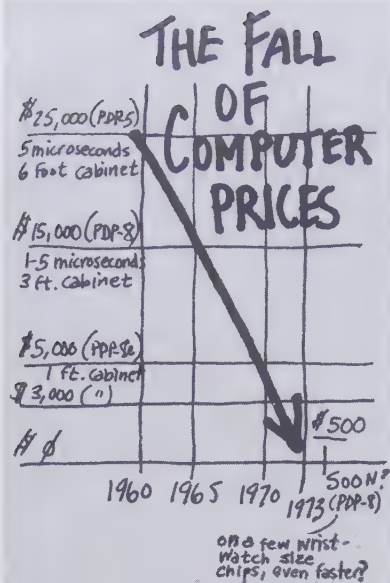 THE FALL
OF
COMPUTER
PRICES
$25,000 (PDP-5)
5 microseconds
6 foot cabinet
$15,000 (PDP-8)
1-5 microseconds
3 ft. cabinet
$5,000 (PDP-8e)
1 ft. cabinet
$3,000 (")
$0
$500
1960 1965 1970 1973
500 N?
(PDP-8)
on a few wrist-
watch size
chips, even faster?